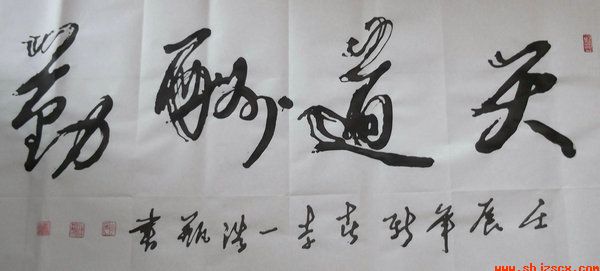 天道酬勤
壬辰年春李一浩书
www.shjzscx.com